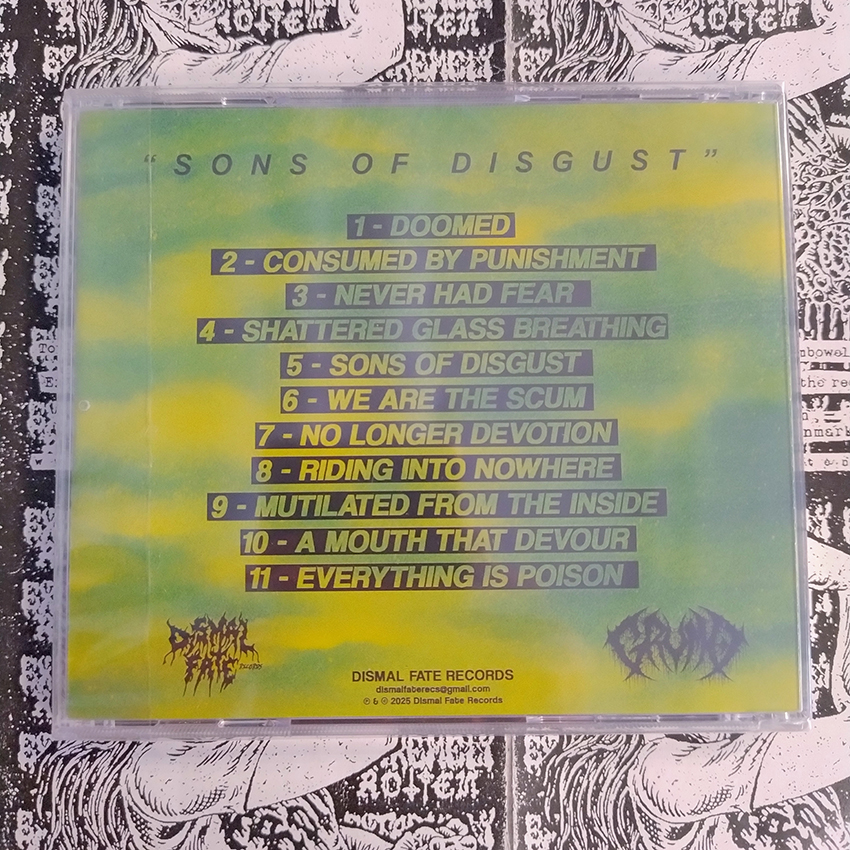 ROTTEN
ROTTEN
“SONS OF DISGUST”
1 - DOOMED
2 - CONSUMED BY PUNISHMENT
3 - NEVER HAD FEAR
4 - SHATTERED GLASS BREATHING
5 - SONS OF DISGUST
6 - WE ARE THE SCUM
7 - NO LONGER DEVOTION
8 - RIDING INTO NOWHERE
9 - MUTILATED FROM THE INSIDE
10 - A MOUTH THAT DEVOUR
11 - EVERYTHING IS POISON
DISMAL
FATE
DISMAL FATE RECORDS
dismalfaterecs@gmail.com
℗ & © 2025 Dismal Fate Records
ROTTEN
ROTTEN